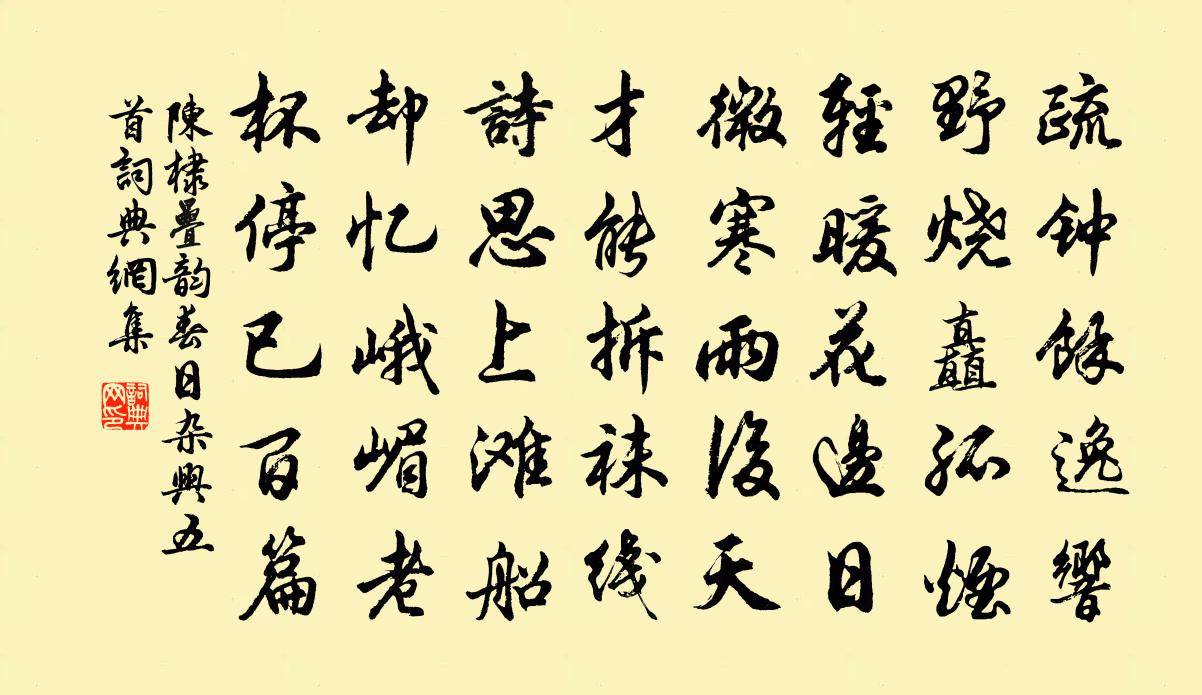 疏钟餘逸響
野烧矗孤煙
輕暖花邊日
微寒雨後天
才能拆袜线
詩思上滩船
却忆峨嵋老
杯停已百篇
陳棣疊韵春日杂興五
首詞典網集
詞典网印